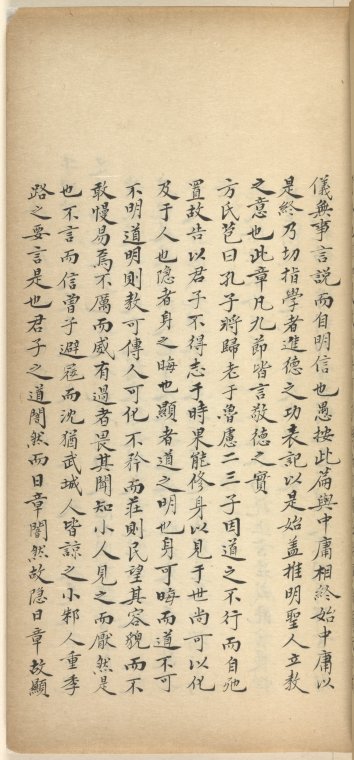 儀無事言說而自明信也愚按此篇與中庸相終始中庸以
是終乃切指學者進德之功表記以是始盖推明聖人立教
之意也此章凡九節皆言敬德之實
方氏苞曰孔子將歸老于魯慮二三子因道之不行而自弛
置故告以君子不得志于時果能修身以見于世尚可以化
及于人也隐者身之晦也顯者道之明也身可晦而道不可
不明道明則教可傳人可化不矜而莊則民望其容貌而不
敢慢易焉不厲而威有過者畏其聞知小人見之而厭然是
也不言而信曽子避寇而沈猶武城人皆諒之小邾人重季
路之要言是也君子之道闇然而日章闇然故隐日章故顯